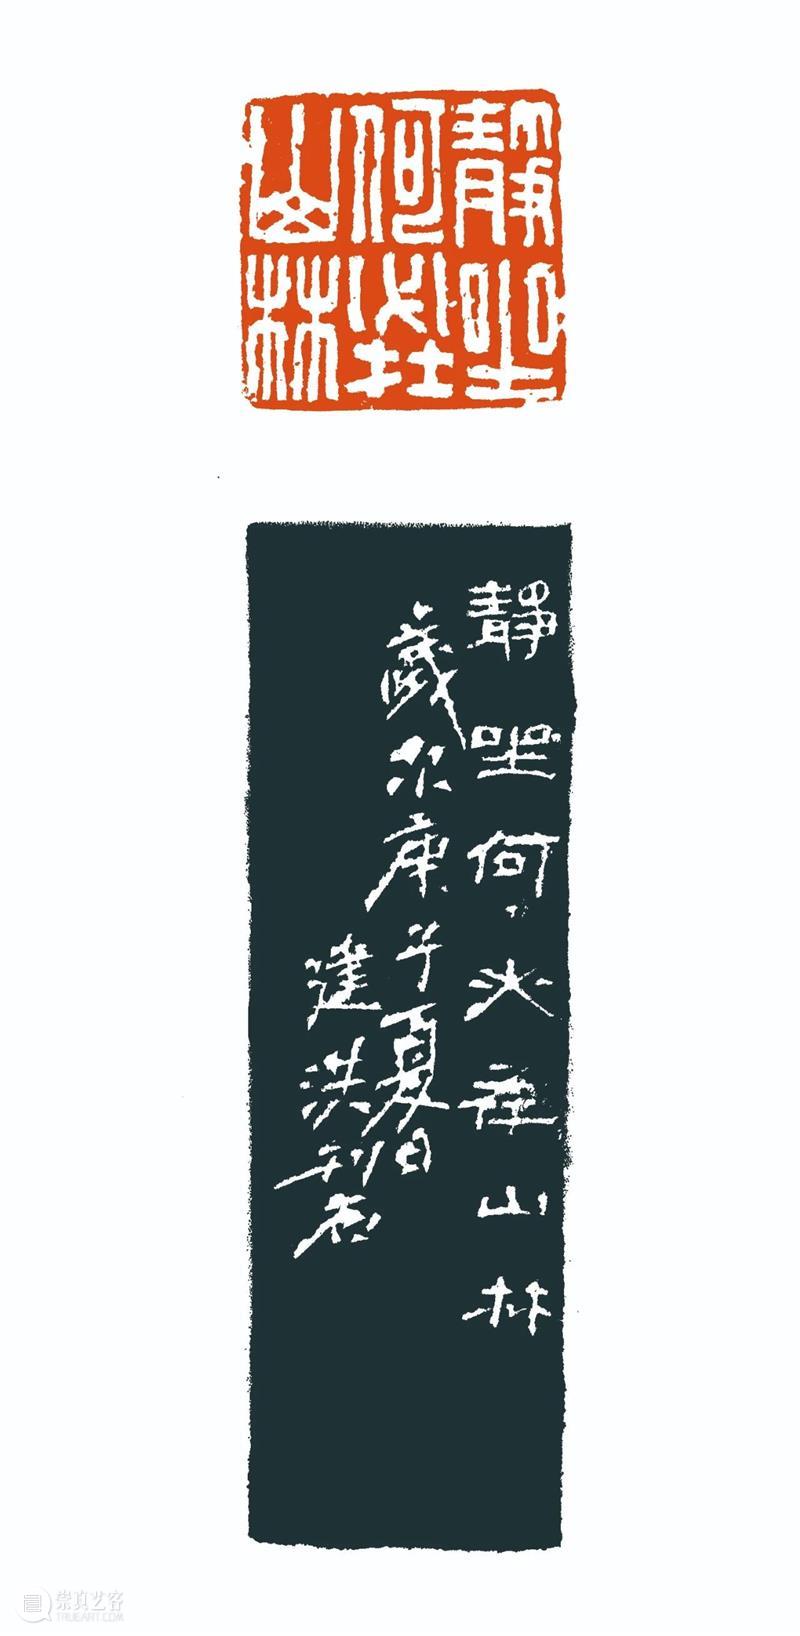 靜坐
何必在
山林
靜坐何必在山林
歲次庚子夏日
建洪刊石
崇真艺客
TRUEART.COM